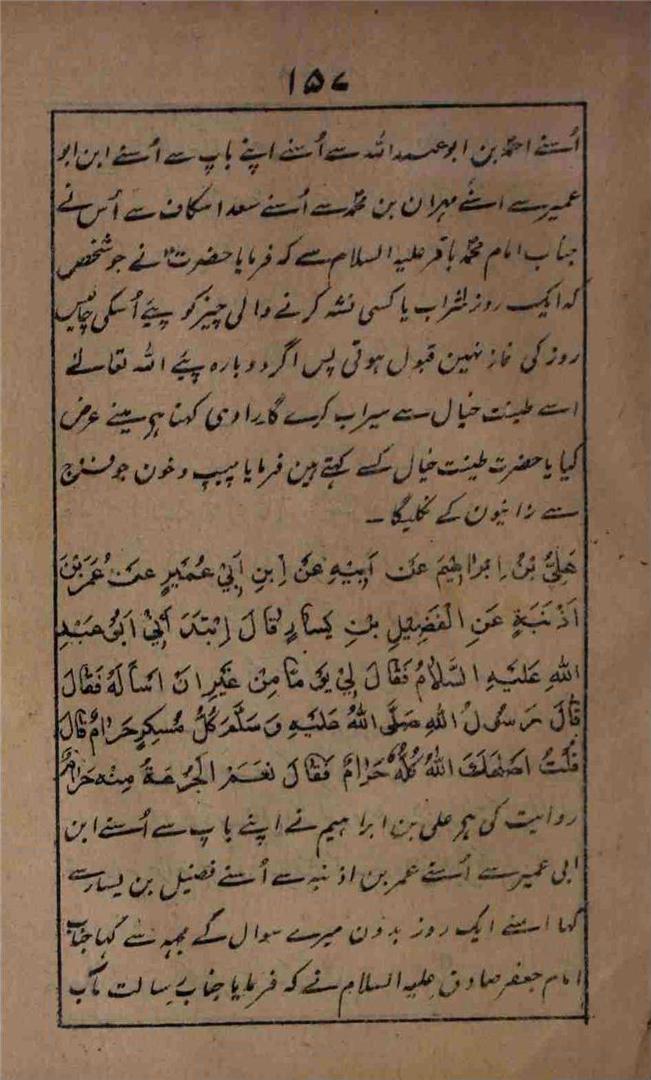 ۱۵۷
اُسنے احمد بن ابو عبد اللہ سے اُسنے اپنے باپ سے اُسنے ابن ابو
عمیر سے اسنے مہران بن محمد سے اُسنے سعد اسکاف سے اُس نے
جناب امام محمد باقر علیہ السلام سے کہ فرمایا حضرت نے جو شخص
کہ ایک روز شراب یا کسی نشہ کرنے والی چیز کو پئے اُسکی چالیس
روز کی نماز نہین قبول ہوتی پس اگر دوبارہ پئے اللہ تعالے
اسے طینت خبال سے سیراب کرے گا راوی کہتا ہی مینے عرض
کیا یا حضرت طینت خبال کسے کہتے ہین فرمایا پیپ و خون جو فرج
سے زانیون کے نکلیگا ۔
عَلِيُّ بْنُ اِبْرَاهِيْمَ عَنْ اَبِيْهِ عَنْ اِبْنِ اَبِيْ عُمَيْرٍ عَنْ عُمَرَ بْنِ
اُذْنَيَةٍ عَنِ الْفُضَيْلِ بْنِ يَسَارٍ قَالَ اِبْتَدَءَ اَبِيْ اَبُوْ عَبْدِ
اللهِ عَلَيْهِ السَّلَامُ فَقَالَ لِيْ يَوْمًا مِنْ غَيْرِ اَنْ اَسْأَلَهُ فَقَالَ
قَالَ رَسُوْلُ اللهِ صَلَّى اللهُ عَلَيْهِ وَسَلَّمَ كُلُّ مُسْكِرٍ حَرَامٌ قَالَ
قُلْتُ اَصْلَحَكَ اللهُ كُلُّهُ حَرَامٌ فَقَالَ نَعَمْ الْجُرْعَةُ مِنْهُ حَرَامٌ
روایت کی ہی علی بن ابراہیم نے اپنے باپ سے اُسنے ابن
ابی عمیر سے اُسنے عمر بن اذنیہ سے اُسنے فضیل بن یسار سے
کہا اسنے ایک روز بدون میرے سوال کے مجھہ سے کہا جناب
امام جعفر صادق علیہ السلام نے کہ فرمایا جناب رسالت مآب